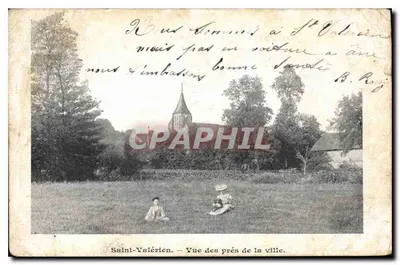 Nous sommes a St Valérien
mais pas en voiture a âne
nous t'embrassons bonne Santé
B. R
CPARAMA
Saint-Valérien. - Vue des prés de la ville.